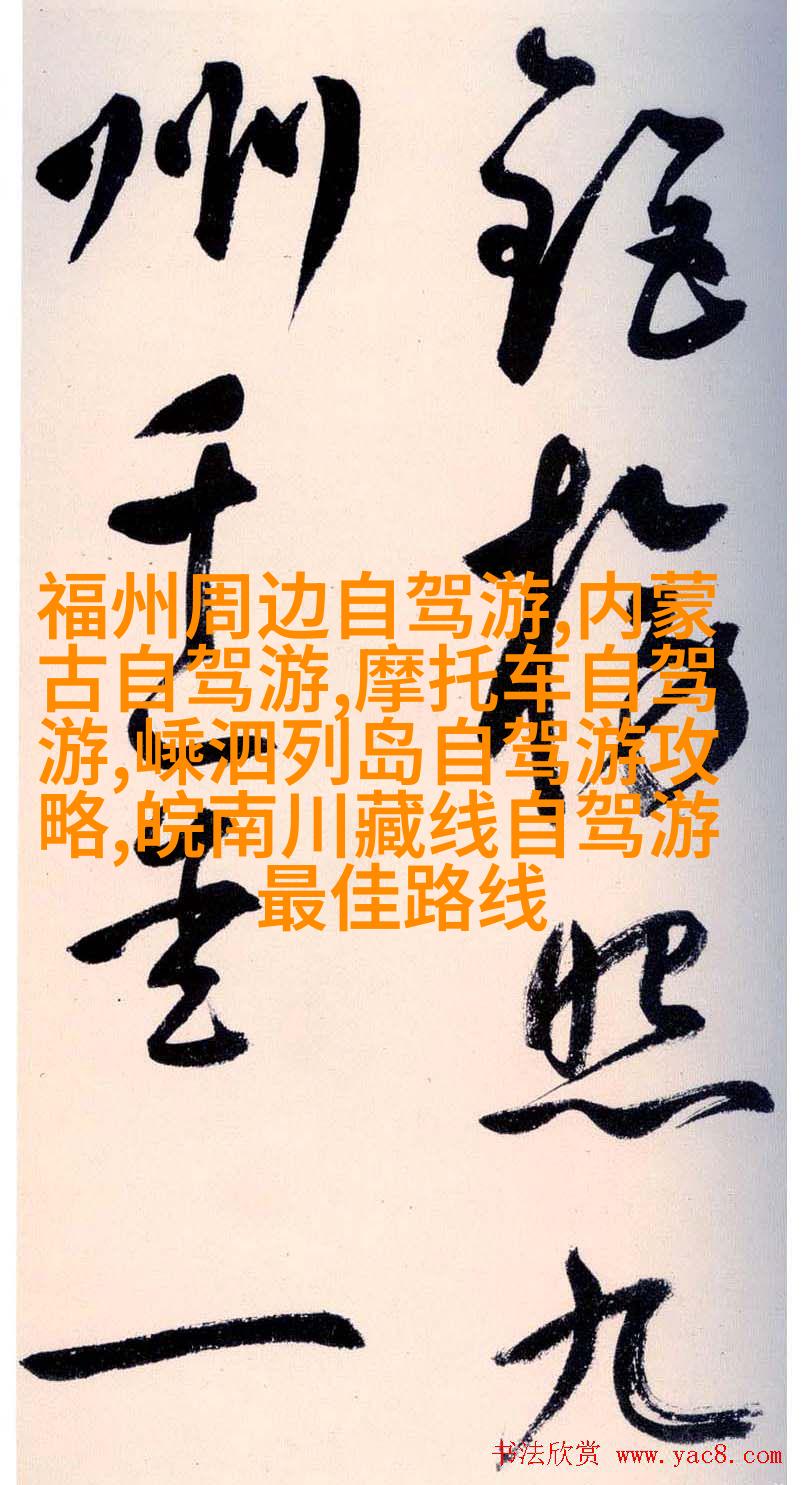 照九
州千一
福州周边自驾游,内蒙
古自驾游,摩托车自驾
游,嵊泗列岛自驾游攻
略,皖南川藏线自驾游
最佳路线
书法欣赏 www.yac8.com